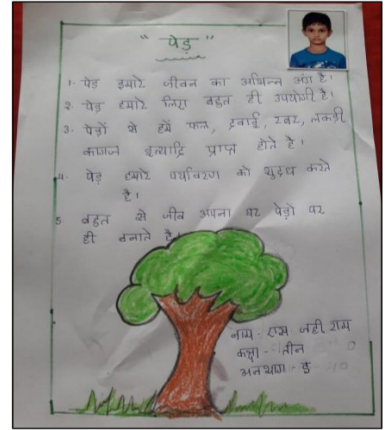 " पेड़ "
1. पेड़ हमारे जीवन का अभिन्न अंग है।
2. पेड़ हमारे लिए बहुत ही उपयोगी है।
3. पेड़ों से हमें फल, दवाई, रबर, लकड़ी
कागज इत्यादि प्राप्त होते है।
4. पेड़ हमारे पर्यावरण को शुद्ध करते
है।
5 बहुत से जीव अपना घर पेड़ो पर
ही बनाते है।
नाम - एस जही राम
कक्षा - तीन
अनुभाग - ड